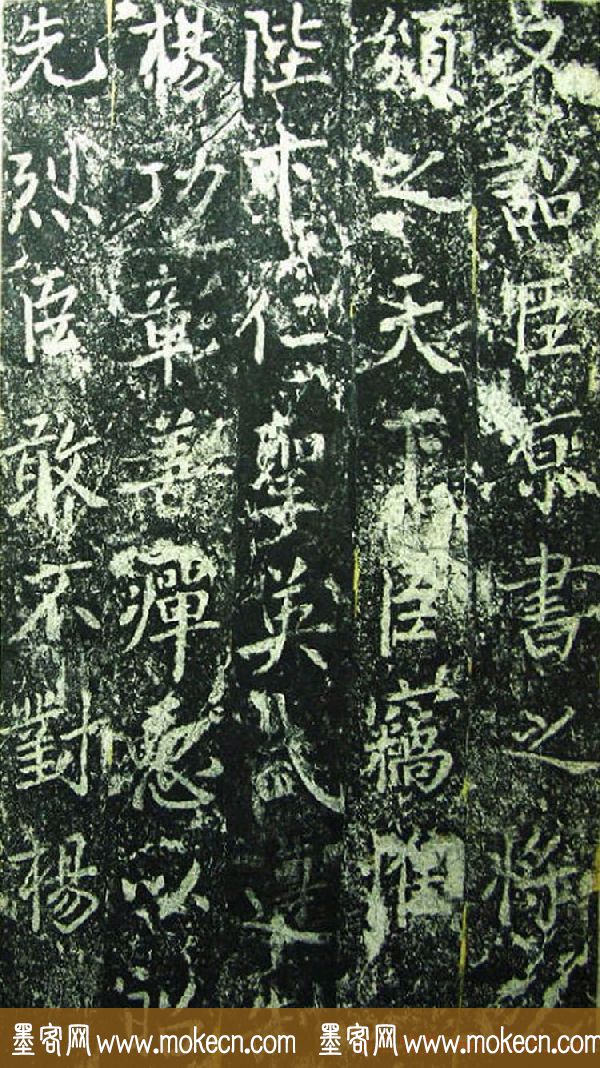 文詔臣京書之將
頒之天下臣竊惟
陛下仁聖英武
楊功章善癉惡以
先烈臣敢不對楊
墨客网 www.mokecn.com 墨客网 www.mokecn.com